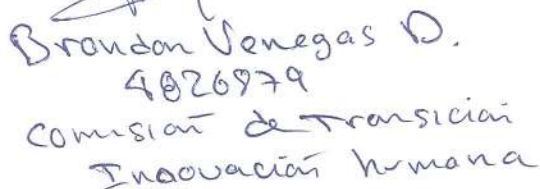 Brandon Venegas D.
4826979
Comisión de Transición
Innovación humana